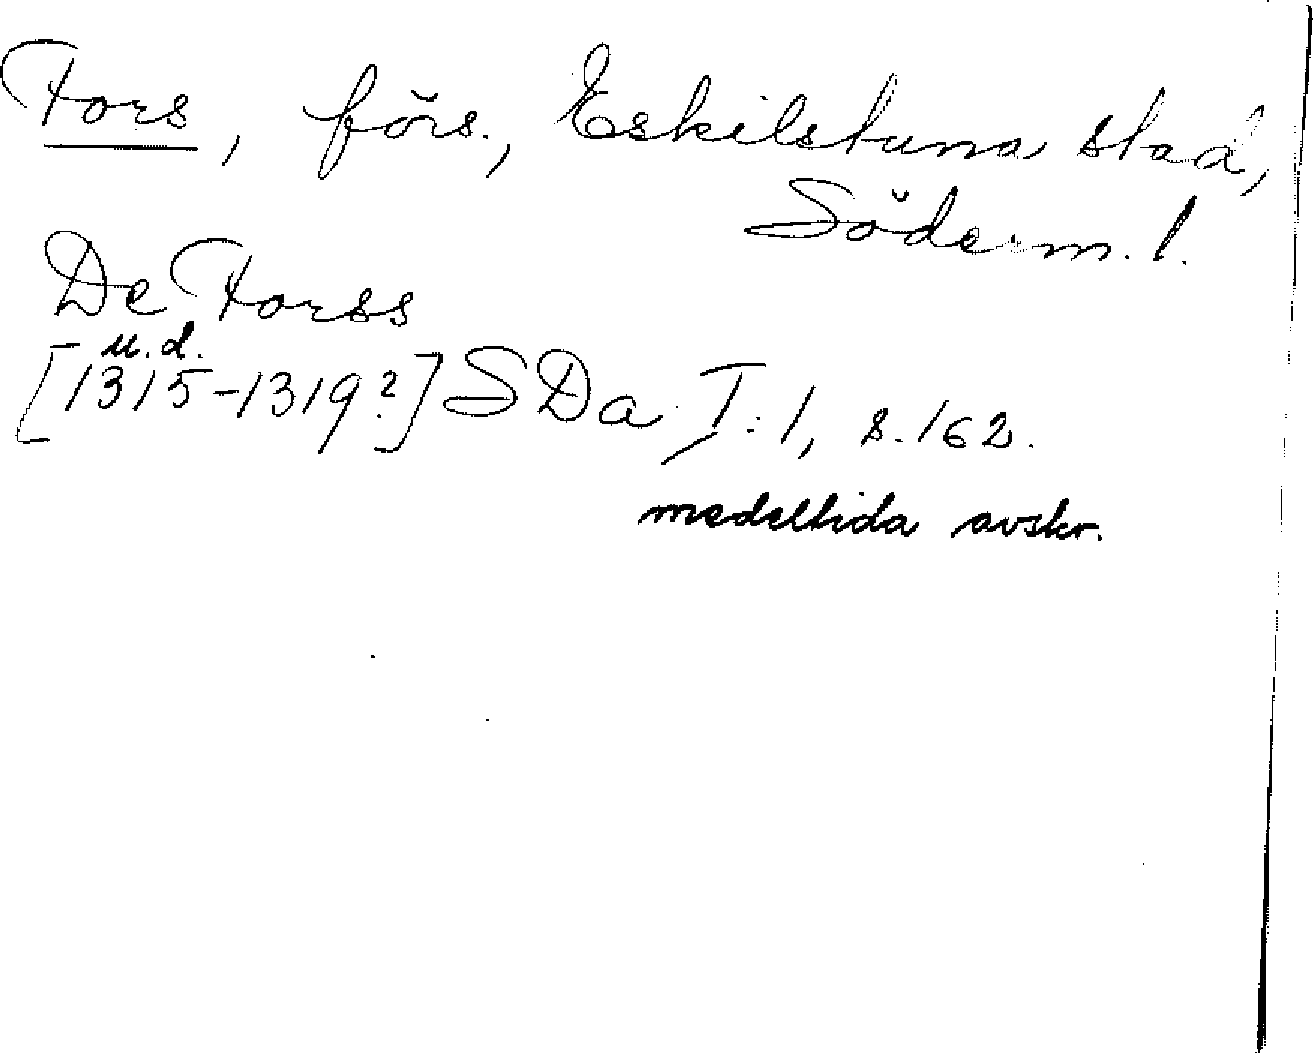 Fors, förs., Eskilstuna stad,
Söderm. l.
De Forss
u.d.
[1315-1319?] SDa I:1, s. 162.
medeltida avskr.